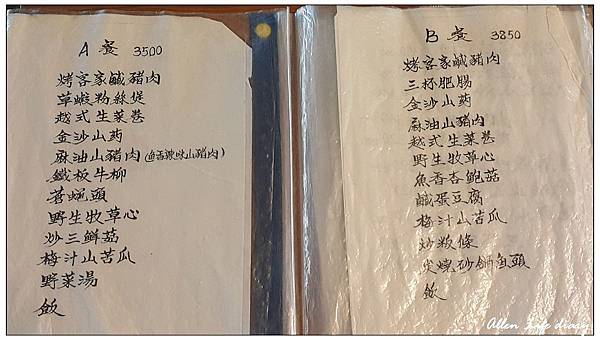 A 餐 3500
烤客家鹹豬肉
草蝦粉絲煲
越式生菜卷
金沙山药
麻油山豬肉(魚香辣味山豬肉)
鐵板牛柳
蒼蝇頭
野生牧草心
炒三鲜菇
梅汁山苦瓜
野菜湯
飯
B 餐 3850
烤客家鹹豬肉
三杯肥腸
金沙山药
麻油山豬肉
越式生菜卷
野生牧草心
魚香杏鮑菇
鹹蛋豆腐
梅汁山苦瓜
炒粄條
炭燒砂鍋魚頭
飯
Allen Life diary